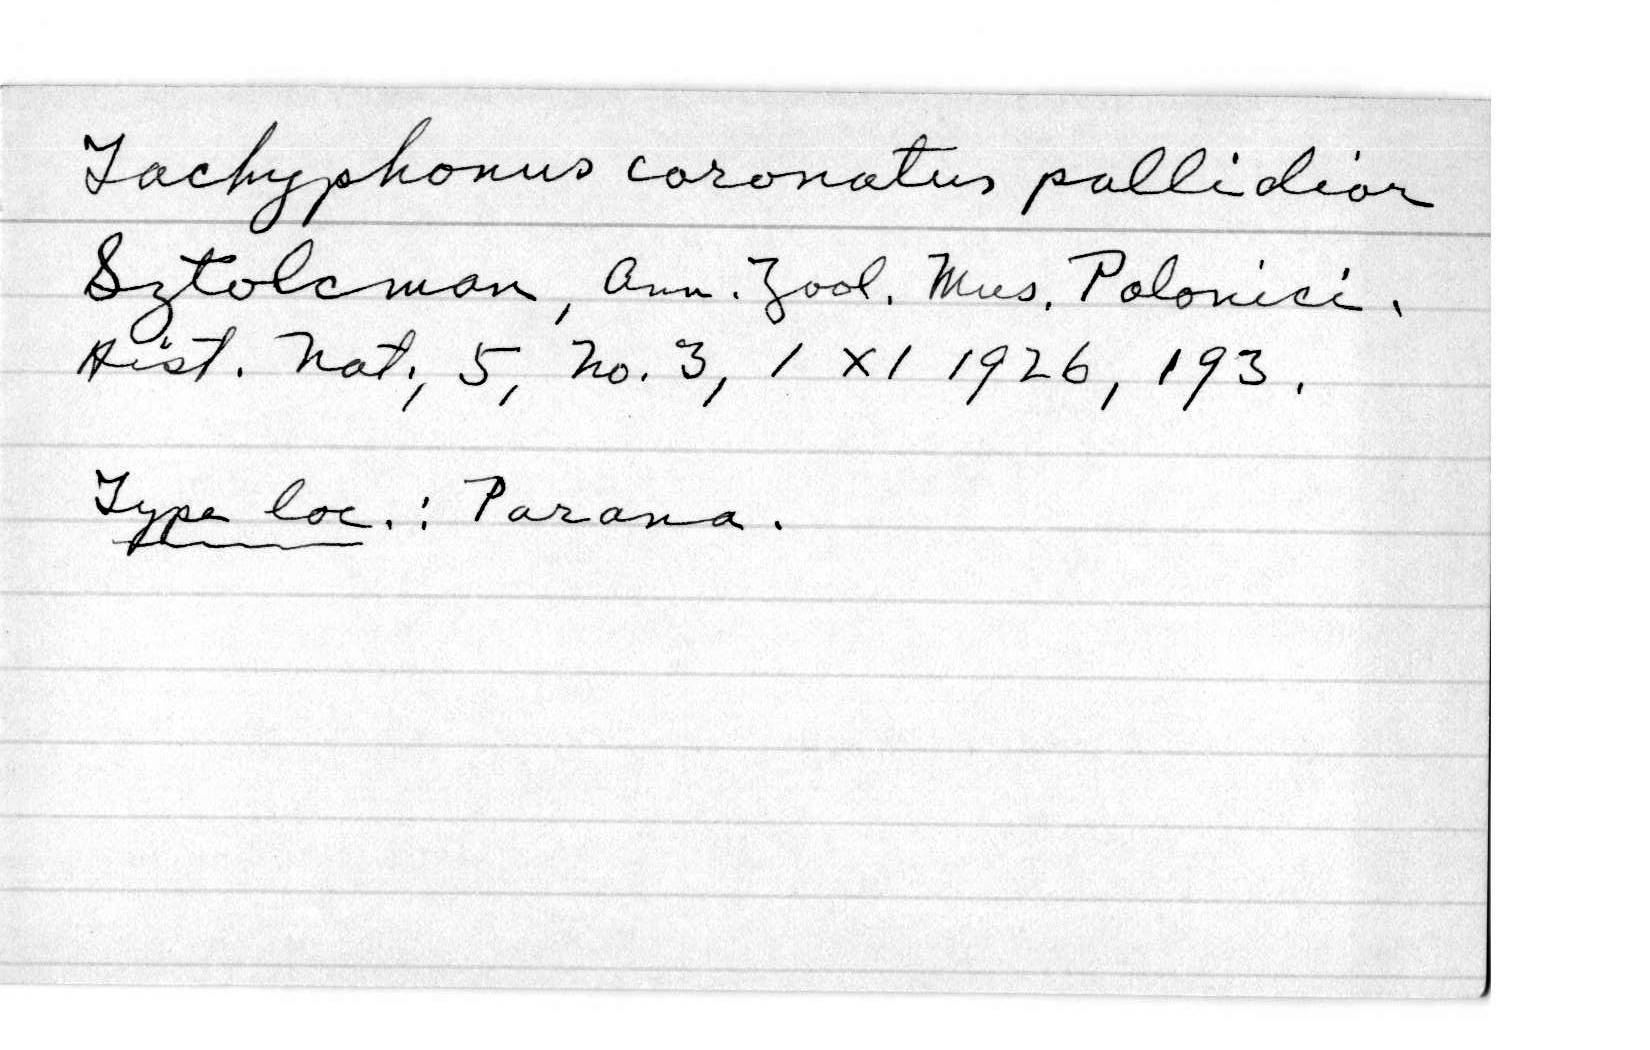 Tachyphonus coronatus pallidior
Sztolcman, Ann. Zool. Mus. Polonici.
Hist. Nat., 5, No. 3, 1 XI 1926, 193.
Type loc.: Parana.